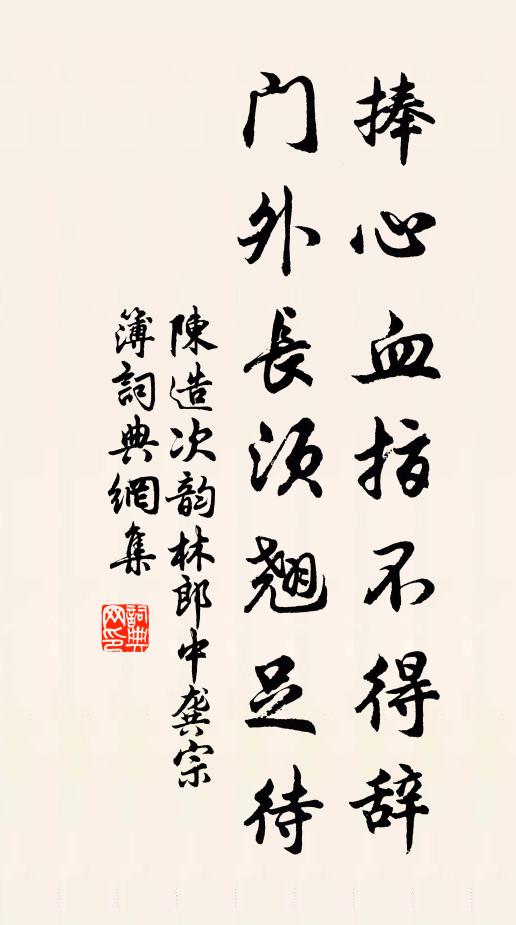 捧心血指不得辞
门外長须翘足待
陳造次韵林郎中龚宗
簿詞典網集
詞典网印